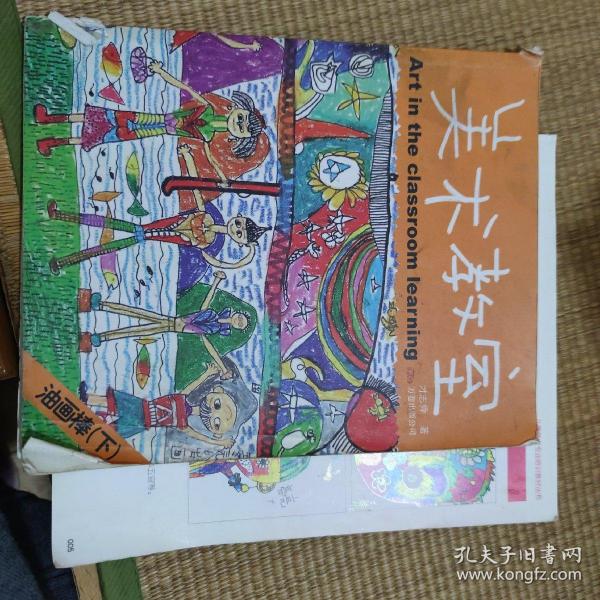 美术教室
Art in the classroom learning
著
万卷出版公司
油画棒(下)
005
孔夫子旧书网
www.kongfz.com